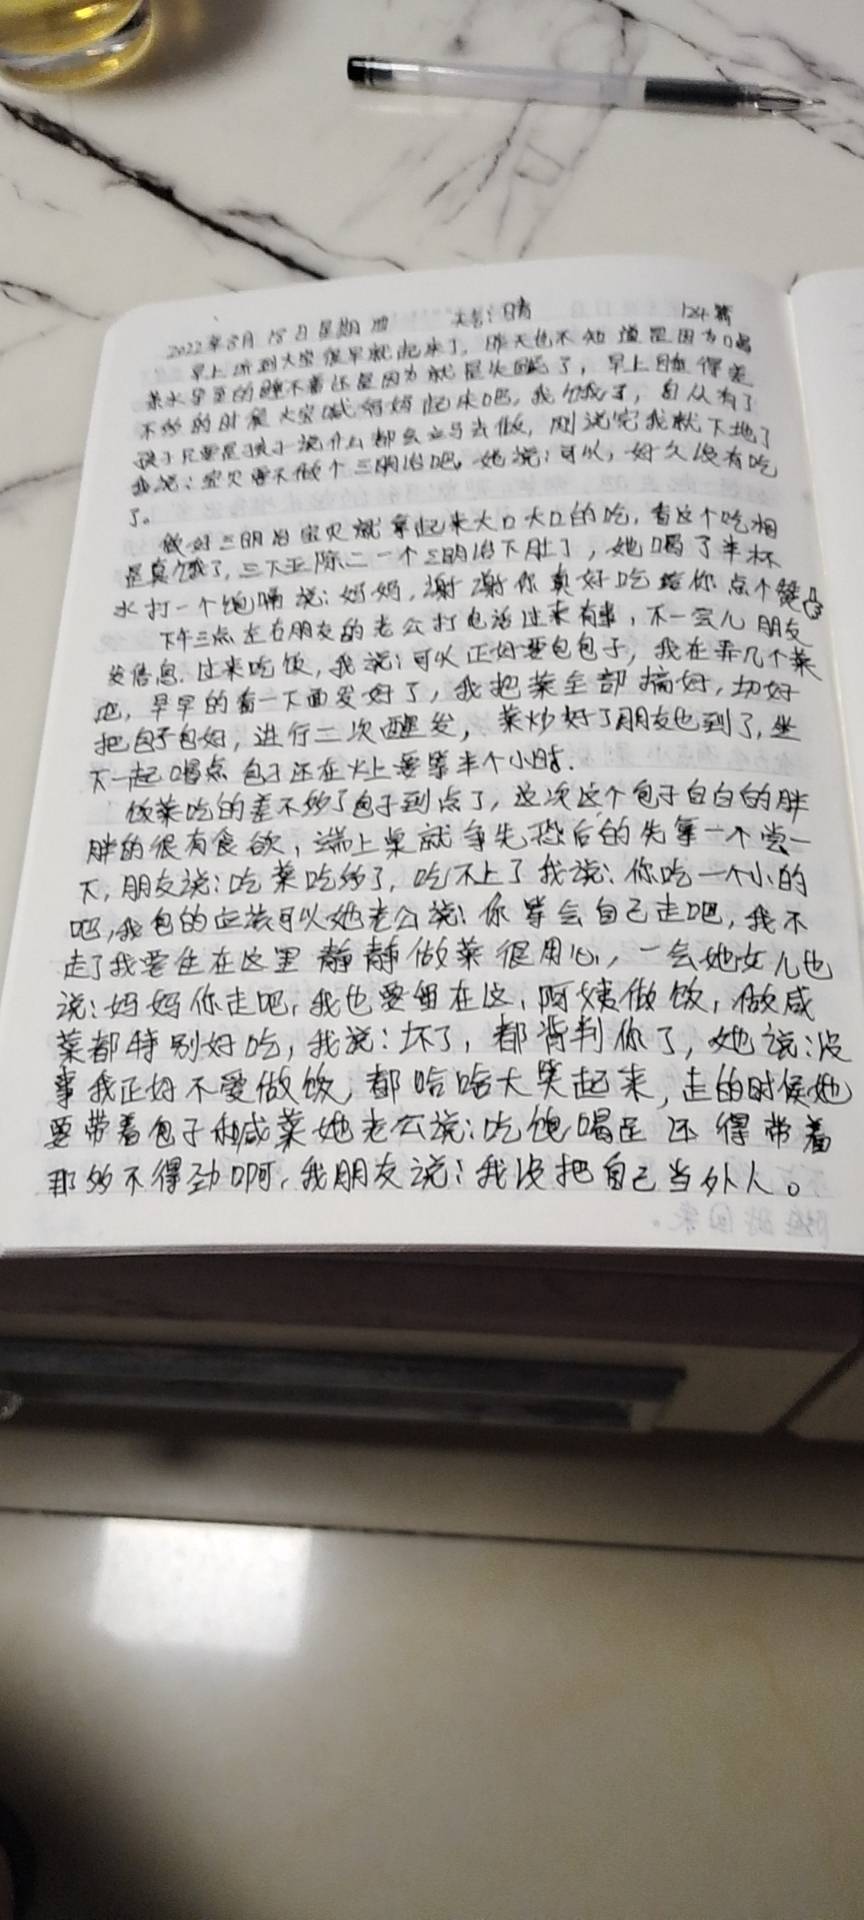 2022年8月18日星期四 天气:晴 124篇
早上听到大宝很早就起来了,昨天也不知道是因为喝
茶水导至的睡不着还是因为就是失眠了,早上睡得差
不多的时候大宝喊妈妈起来吧,我饿了,自从有了
孩子只要是孩子说什么都会立马去做,刚说完我就下地了
我说:宝贝要不做个三明治吧,她说:可以,好久没有吃
了。
做好三明治宝贝就拿起来大口大口的吃,看这个吃相
是真饿了,三下五除二一个三明治下肚了,她喝了半杯
水打一个饱嗝说:妈妈,谢谢你真好吃给你点个赞
下午三点左右朋友的老公打电话过来有事,不一会儿朋友
发信息,过来吃饭,我说:可以正好要包包子,我在弄几个菜
吧,早早的看一下面发好了,我把菜全部摘好,切好
把包子包好,进行二次醒发,菜炒好了朋友也到了,坐
下一起喝点包子还在火上要等半个小时.
饭菜吃的差不多了包子到点了,这次这个包子白白的胖
胖的很有食欲,端上桌就争先恐后的先拿一个尝一
下,朋友说:吃菜吃多了,吃不上了我说:你吃一个小的
吧,我包的应该可以她老公说:你等会自己走吧,我不
走了我要住在这里静静做菜很用心,一会她女儿也
说:妈妈你走吧,我也要留在这,阿姨做饭,做咸
菜都特别好吃,我说:坏了,都背判你了,她说:没
事我正好不爱做饭,都哈哈大笑起来,走的时候她
要带着包子和咸菜她老公说:吃饱喝足还得带着
那多不得劲啊,我朋友说:我没把自己当外人。